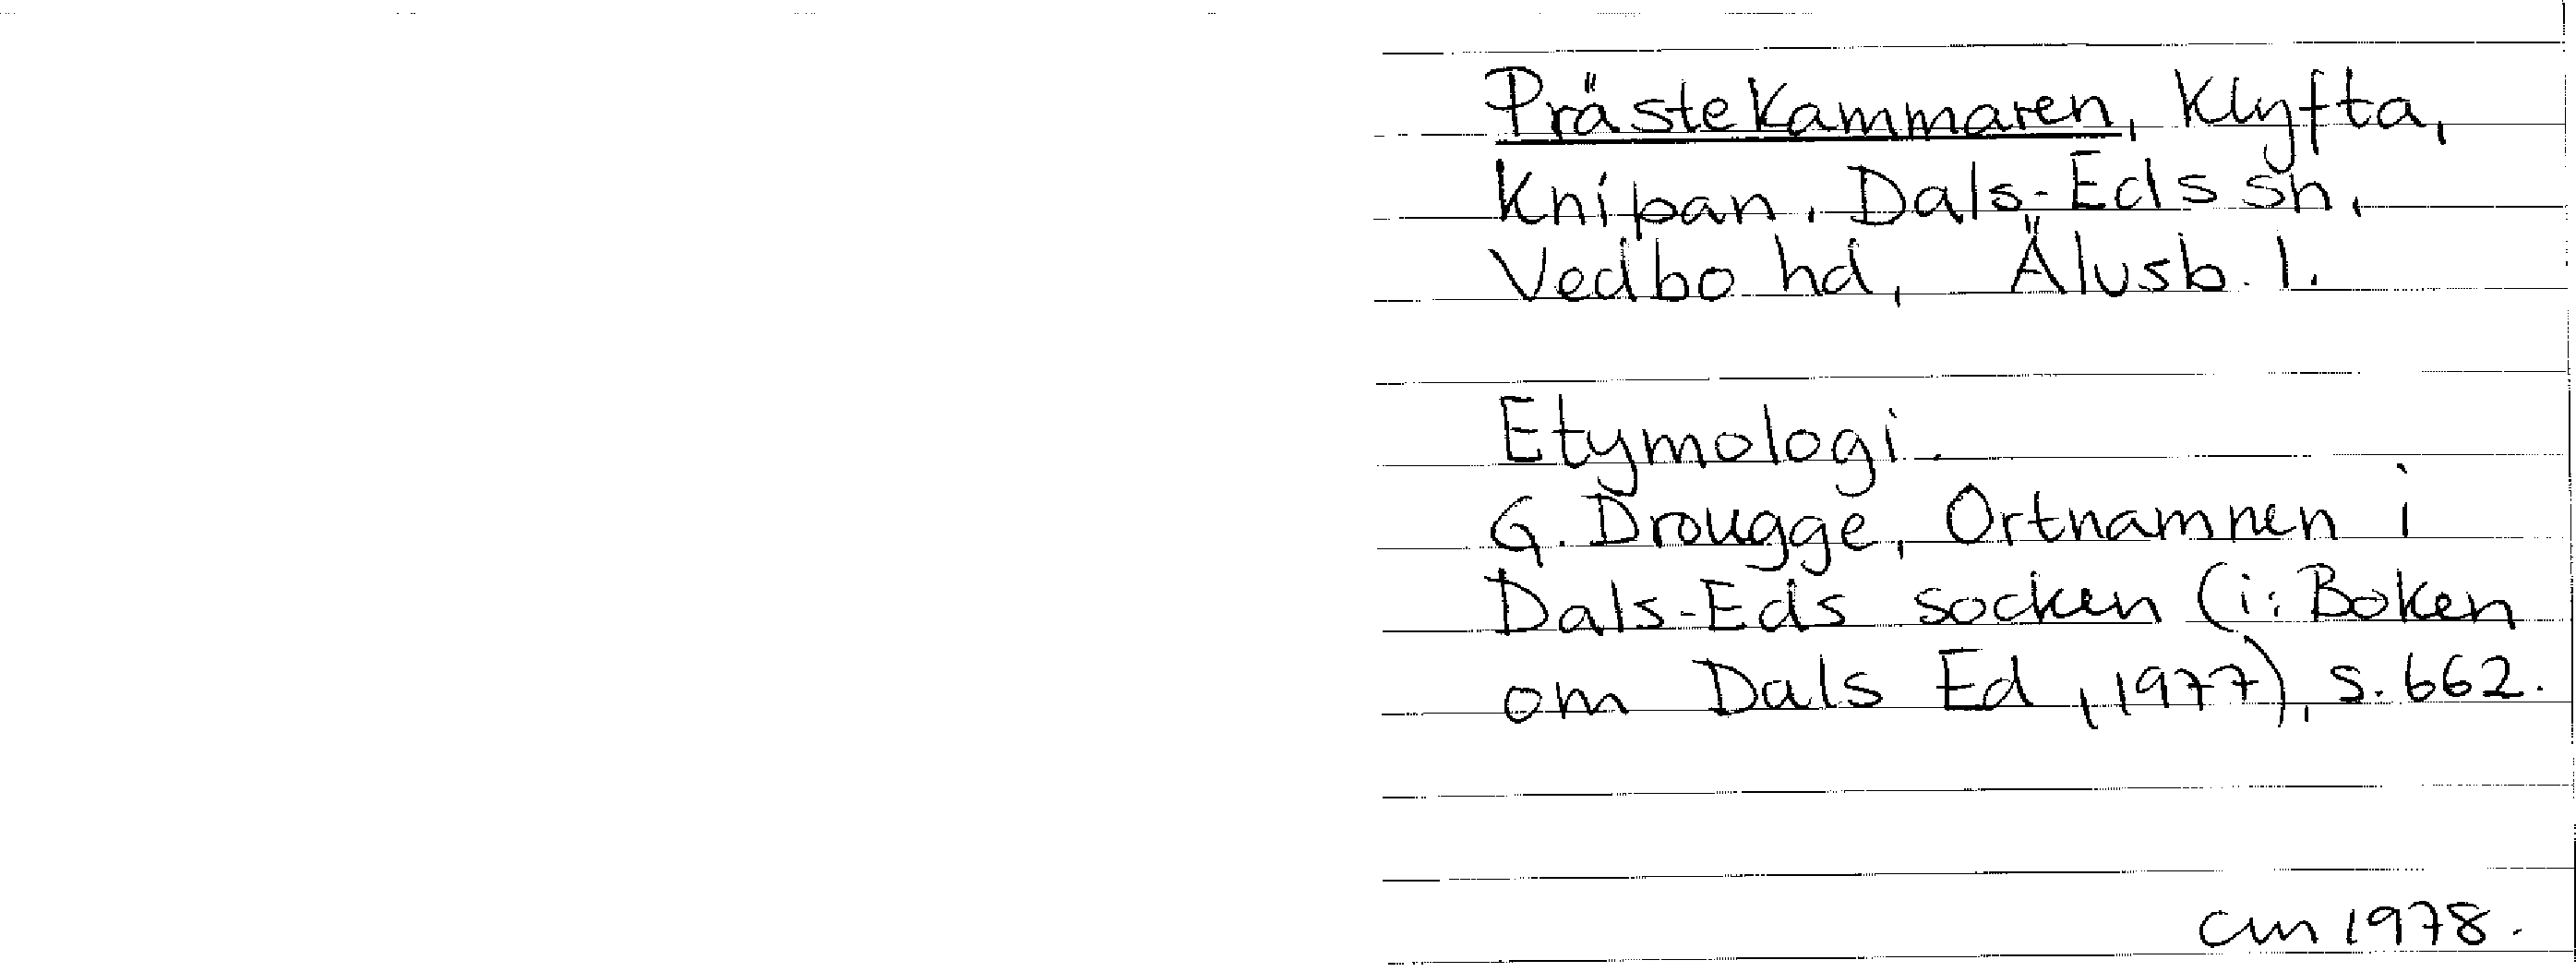 Prästekammaren, Klyfta,
Knipan, Dals-Eds sn,
Vedbo hd, Älvsb. l.
Etymologi.
G. Drougge, Ortnamnen i
Dals-Eds socken (i: Boken
om Dals Ed, 1977), s. 662.
cm 1978.